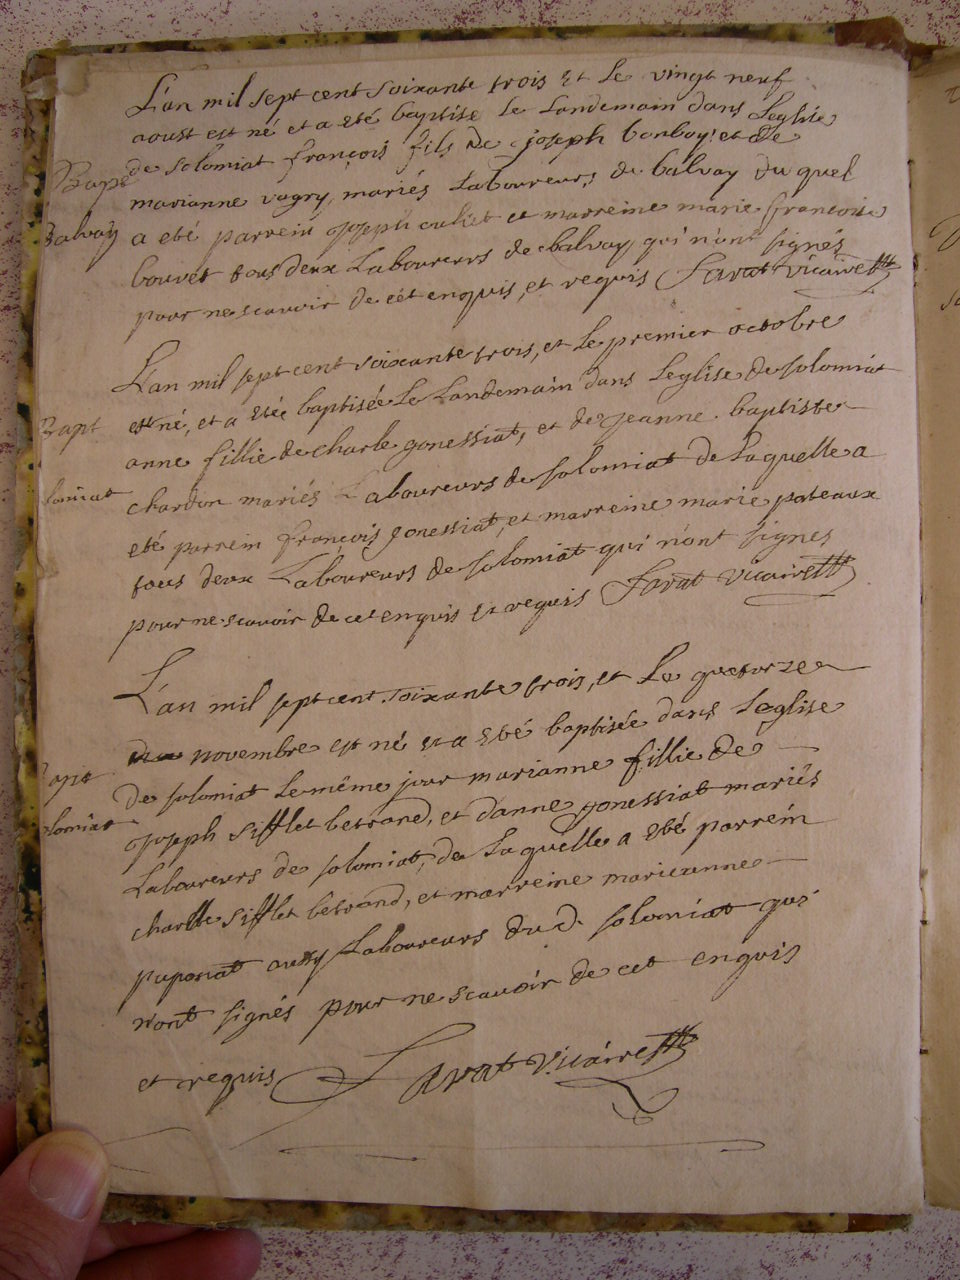 L'an mil sept cent soixante trois et le vingt neuf
aoust est né et a eté baptisé le landemain dans Leglise
Bapt de solomiat françois fils de joseph bonboy et de
marianne vagry, mariés Laboureurs de balvay du quel
Balvay a eté parrein joseph culiet et marreine marie francoise
bouvet tous deux Laboureurs de balvay qui n'ont signés
pour ne scavoir de cét enquis, et requis Savat vicaire
L'an mil sept cent soixante trois, et Le premier octobre
Bapt est né, et a etée baptisée Le Landemain dans Leglise de solomiat
anne fillie de charle gonessiat, et de jeanne baptiste
lomiat chardon mariés Laboureurs de solomiat de Laquelle a
eté parrein françois gonessiat, et marreine marie pateaux
tous deux Laboureurs de solomiat qui n'ont signés
pour ne scavoir de cet enquis et requis Savat vicaire
L'an mil sept cent soixante trois, et Le quatorze
novembre est né et a eté baptisée dans Leglise
bapt de solomiat Le même jour marianne fillie de
olomiat joseph sifflet betrand, et d'anne gonessiat mariés
Laboureurs de solomiat, de Laquelle a eté parrein
charlle sifflet betrand, et marreine marieanne
puponat aussy Laboureurs du d. solomiat qui
n'ont signés pour ne scavoir de cet enquis
et requis Savat vicaire